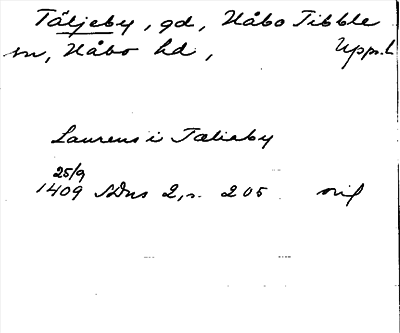 Täljeby, gd, Håbo Tibble
sn, Håbo hd, Upps. l.
Laurens i Taliaby
25/9
1409 SDns 2, s. 205 orig